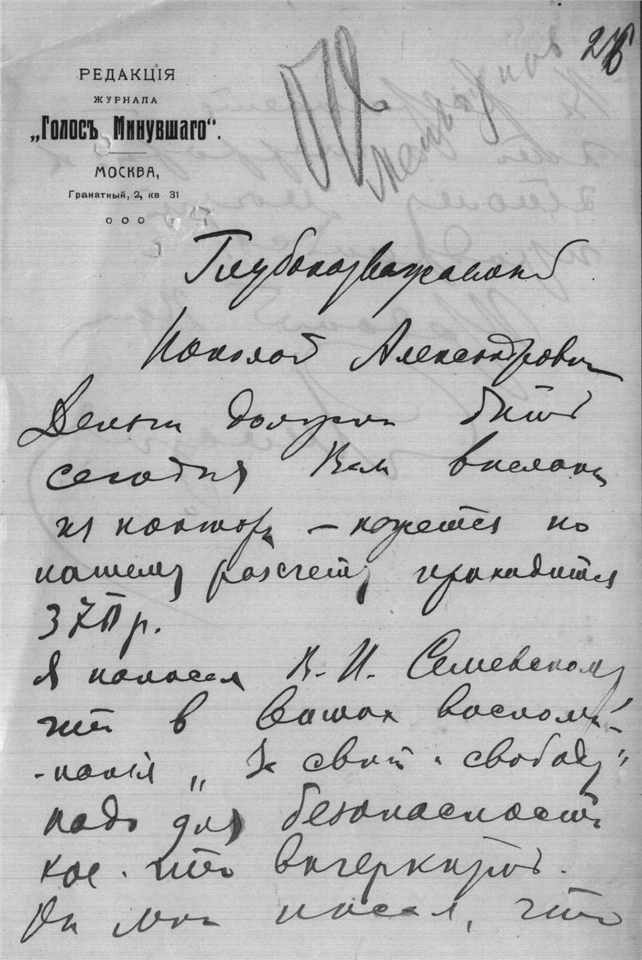 26
РЕДАКЦІЯ
ЖУРНАЛА
„Голосъ Минувшаго“.
МОСКВА,
Гранатный, 2, кв 31
Глубокоуважаемый
Николай Александрович
Деньги должны быть
сегодня Вам высланы
из конторы – кажется по
нашему расчету приходится
37 р.
Я написал В. И. Семевскому
что в Ваших воспоми-
-нанія „За свет и свободу“
надо для безопасности
кое-что вычеркнуть.
Он мне писал, что